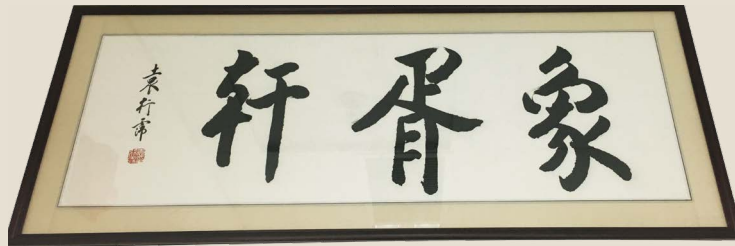 象胥軒
袁行霈